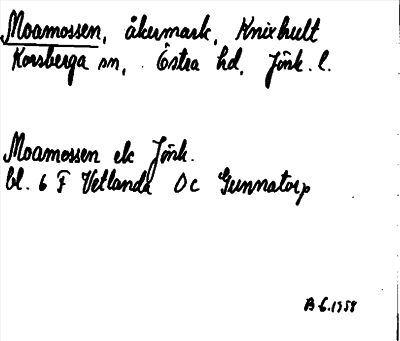 Moamossen, åkermark, Knixhult
Korsberga sn, Östra hd, Jönk. l.
Moamossen ek Jönk.
bl. 6 F Vetlanda 0c Gunnatorp
1958